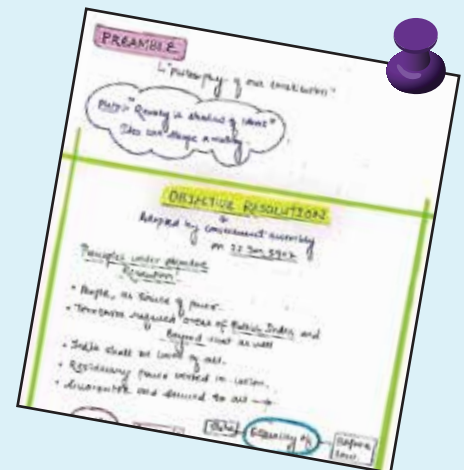 PREAMBLE
"philosophy of our constitution"
Plato: "Reality is shadow of ideas"
Idea can shape a reality.
OBJECTIVE RESOLUTION
Adopted by constituent assembly
on 22 Jan,
Principles under objective
Resolution:
• People, as source of power
• Territories required areas of British India and
Beyond that as well
• India shall be of all.
• Residuary power vested in union.
• Guarantee and secured to all →
Equality of
Before
law